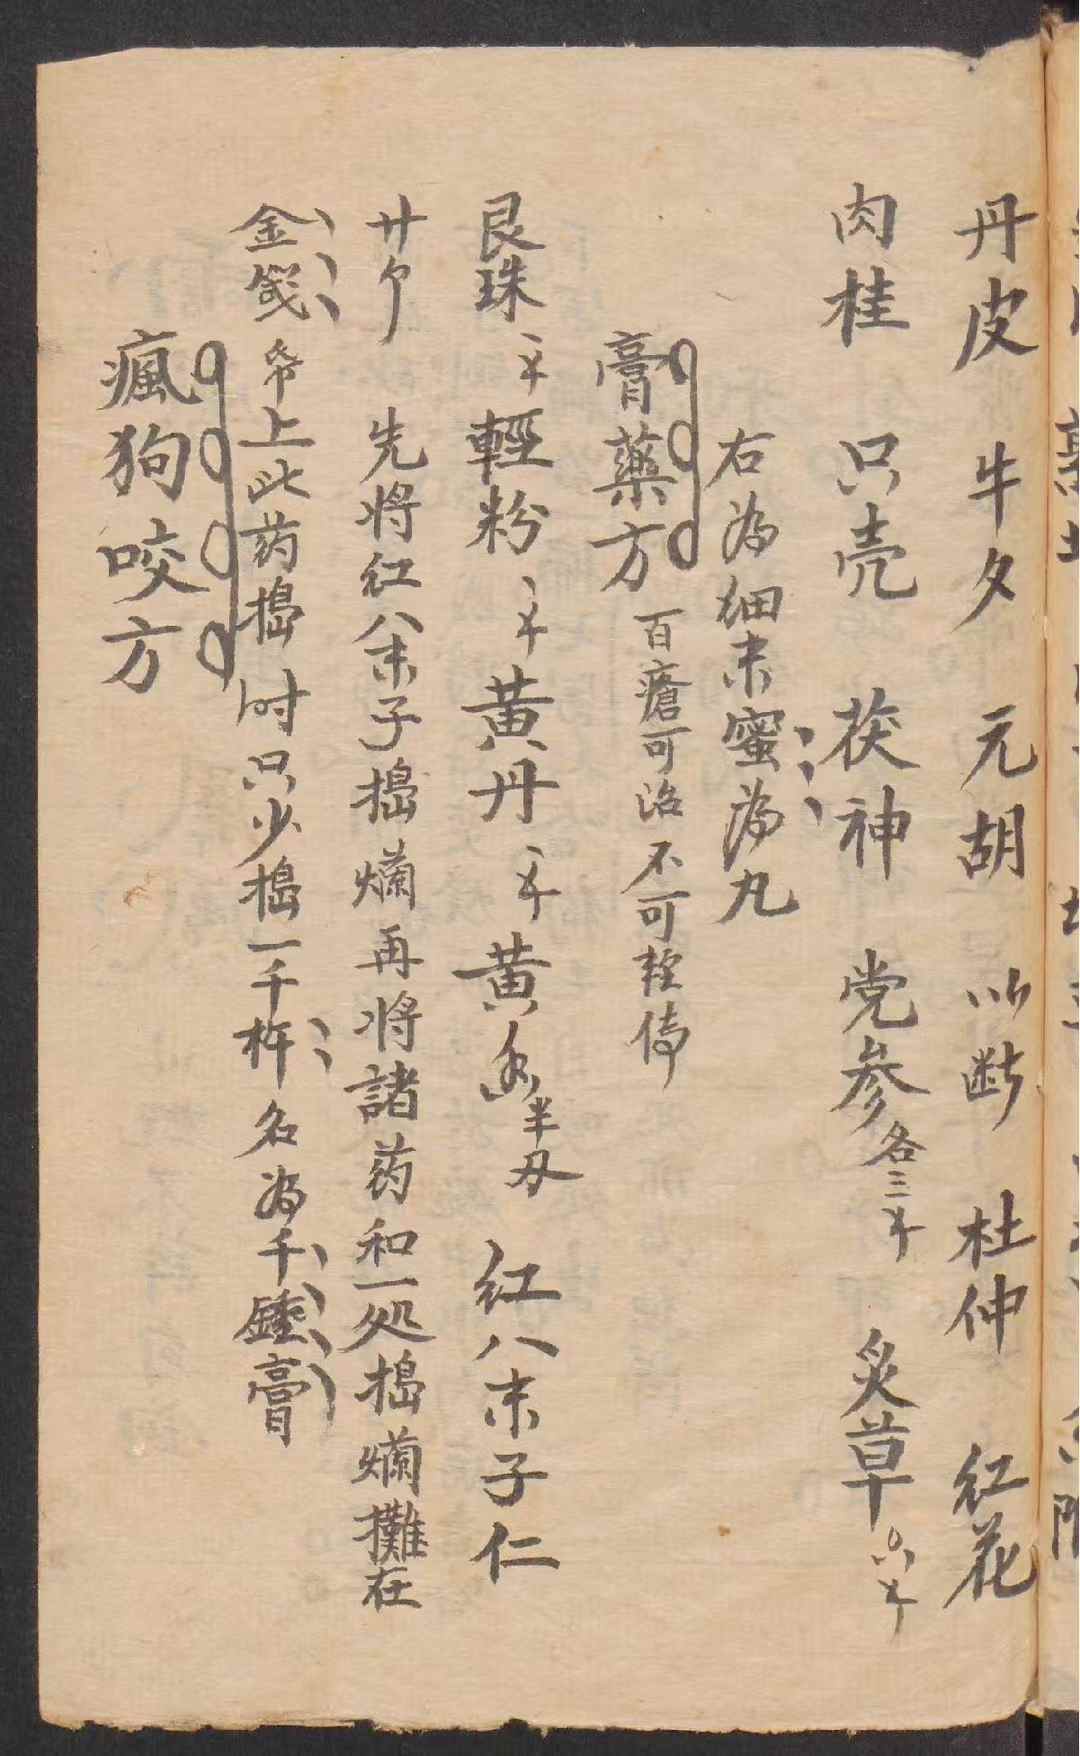 丹皮 牛夕 元胡 川断 杜仲 红花
肉桂 只壳 茯神 党参各三 炙草
右為细末蜜為丸
膏藥方 百瘡可治 不可轻傳
艮珠 輕粉 黄丹 黄 半 红八末子仁
廿 先将红八末子搗爛再将諸药和一处搗爛攤在
金 上此药搗时只少搗一千杵名為千錘膏
瘋狗咬方